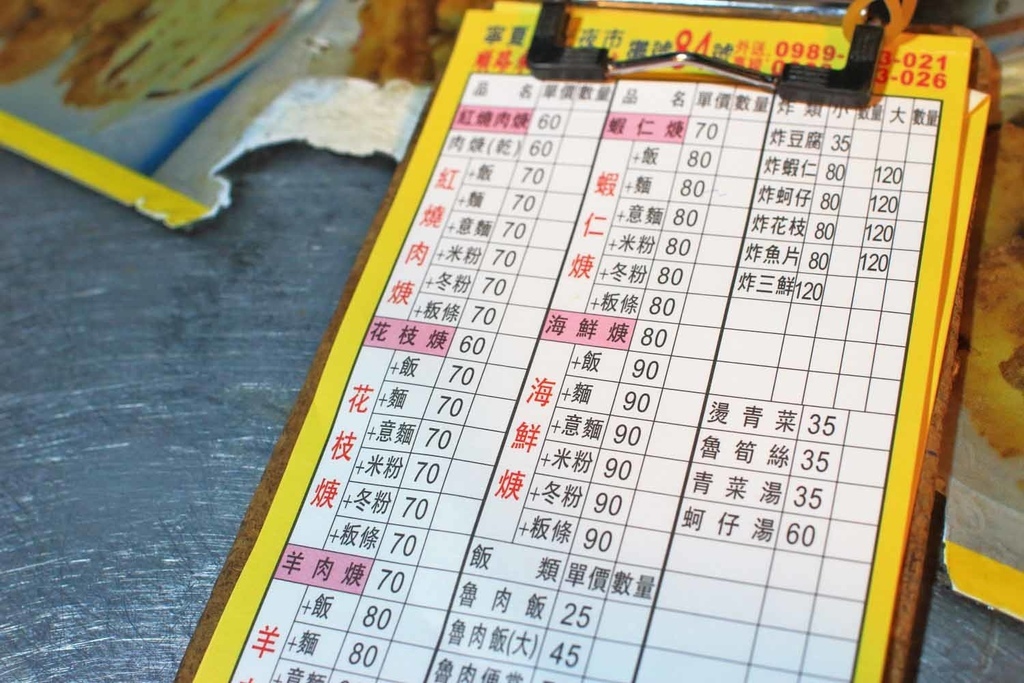 寧夏 夜市 攤號84號 外送 0989- 3-021
3-026
品名 單價 數量
紅燒肉焿 60
肉焿(乾) 60
紅燒肉焿
+飯 70
+麵 70
+意麵 70
+米粉 70
+冬粉 70
+粄條 70
花枝焿 60
花枝焿
+飯 70
+麵 70
+意麵 70
+米粉 70
+冬粉 70
+粄條 70
羊肉焿 70
羊
+飯 80
+麵 80
品名 單價 數量
蝦仁焿 70
蝦仁焿
+飯 80
+麵 80
+意麵 80
+米粉 80
+冬粉 80
+粄條 80
海鮮焿 80
海鮮焿
+飯 90
+麵 90
+意麵 90
+米粉 90
+冬粉 90
+粄條 90
飯類 單價 數量
魯肉飯 25
魯肉飯(大) 45
魯肉便當
炸類 小 數量 大 數量
炸豆腐 35
炸蝦仁 80 120
炸蚵仔 80 120
炸花枝 80 120
炸魚片 80 120
炸三鮮 120
燙青菜 35
魯筍絲 35
青菜湯 35
蚵仔湯 60